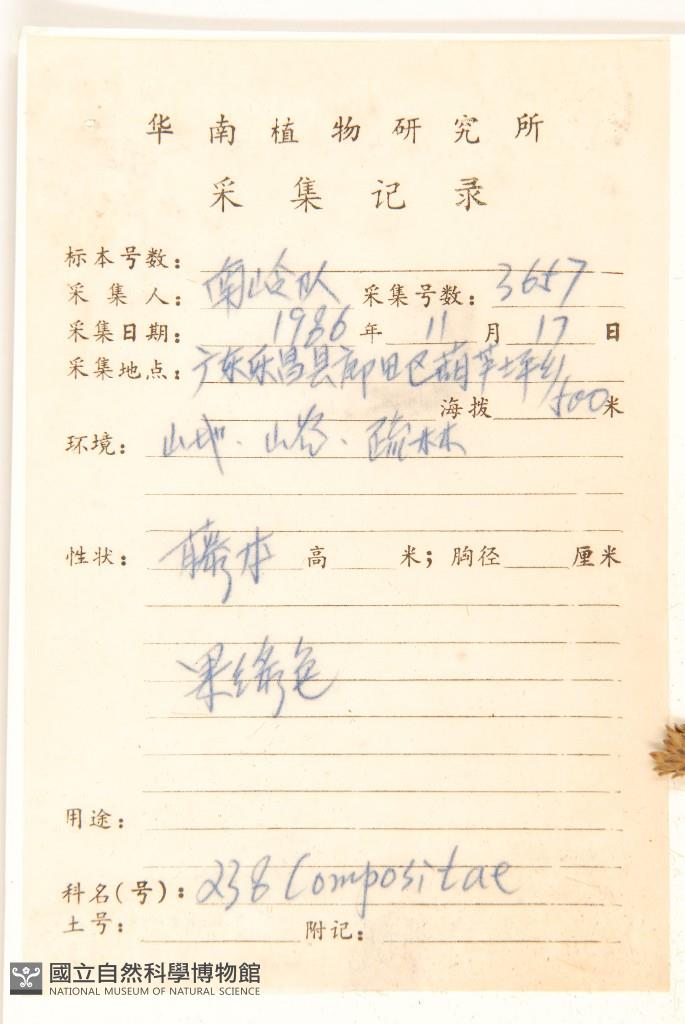 华南植物研究所
采集记录
标本号数：
采集人： 南岭队 采集号数： 3657
采集日期： 1986 年 11 月 17 日
采集地点： 广东乐昌县廊田区葫芦坪乡
海拨 500 米
环境： 山地、山谷、疏林
性状： 藤本 高 米；胸径 厘米
果绿色
用途：
科名(号)： 238 Compositae
土号： 附记：
國立自然科學博物館
NATIONAL MUSEUM OF NATURAL SCIENCE